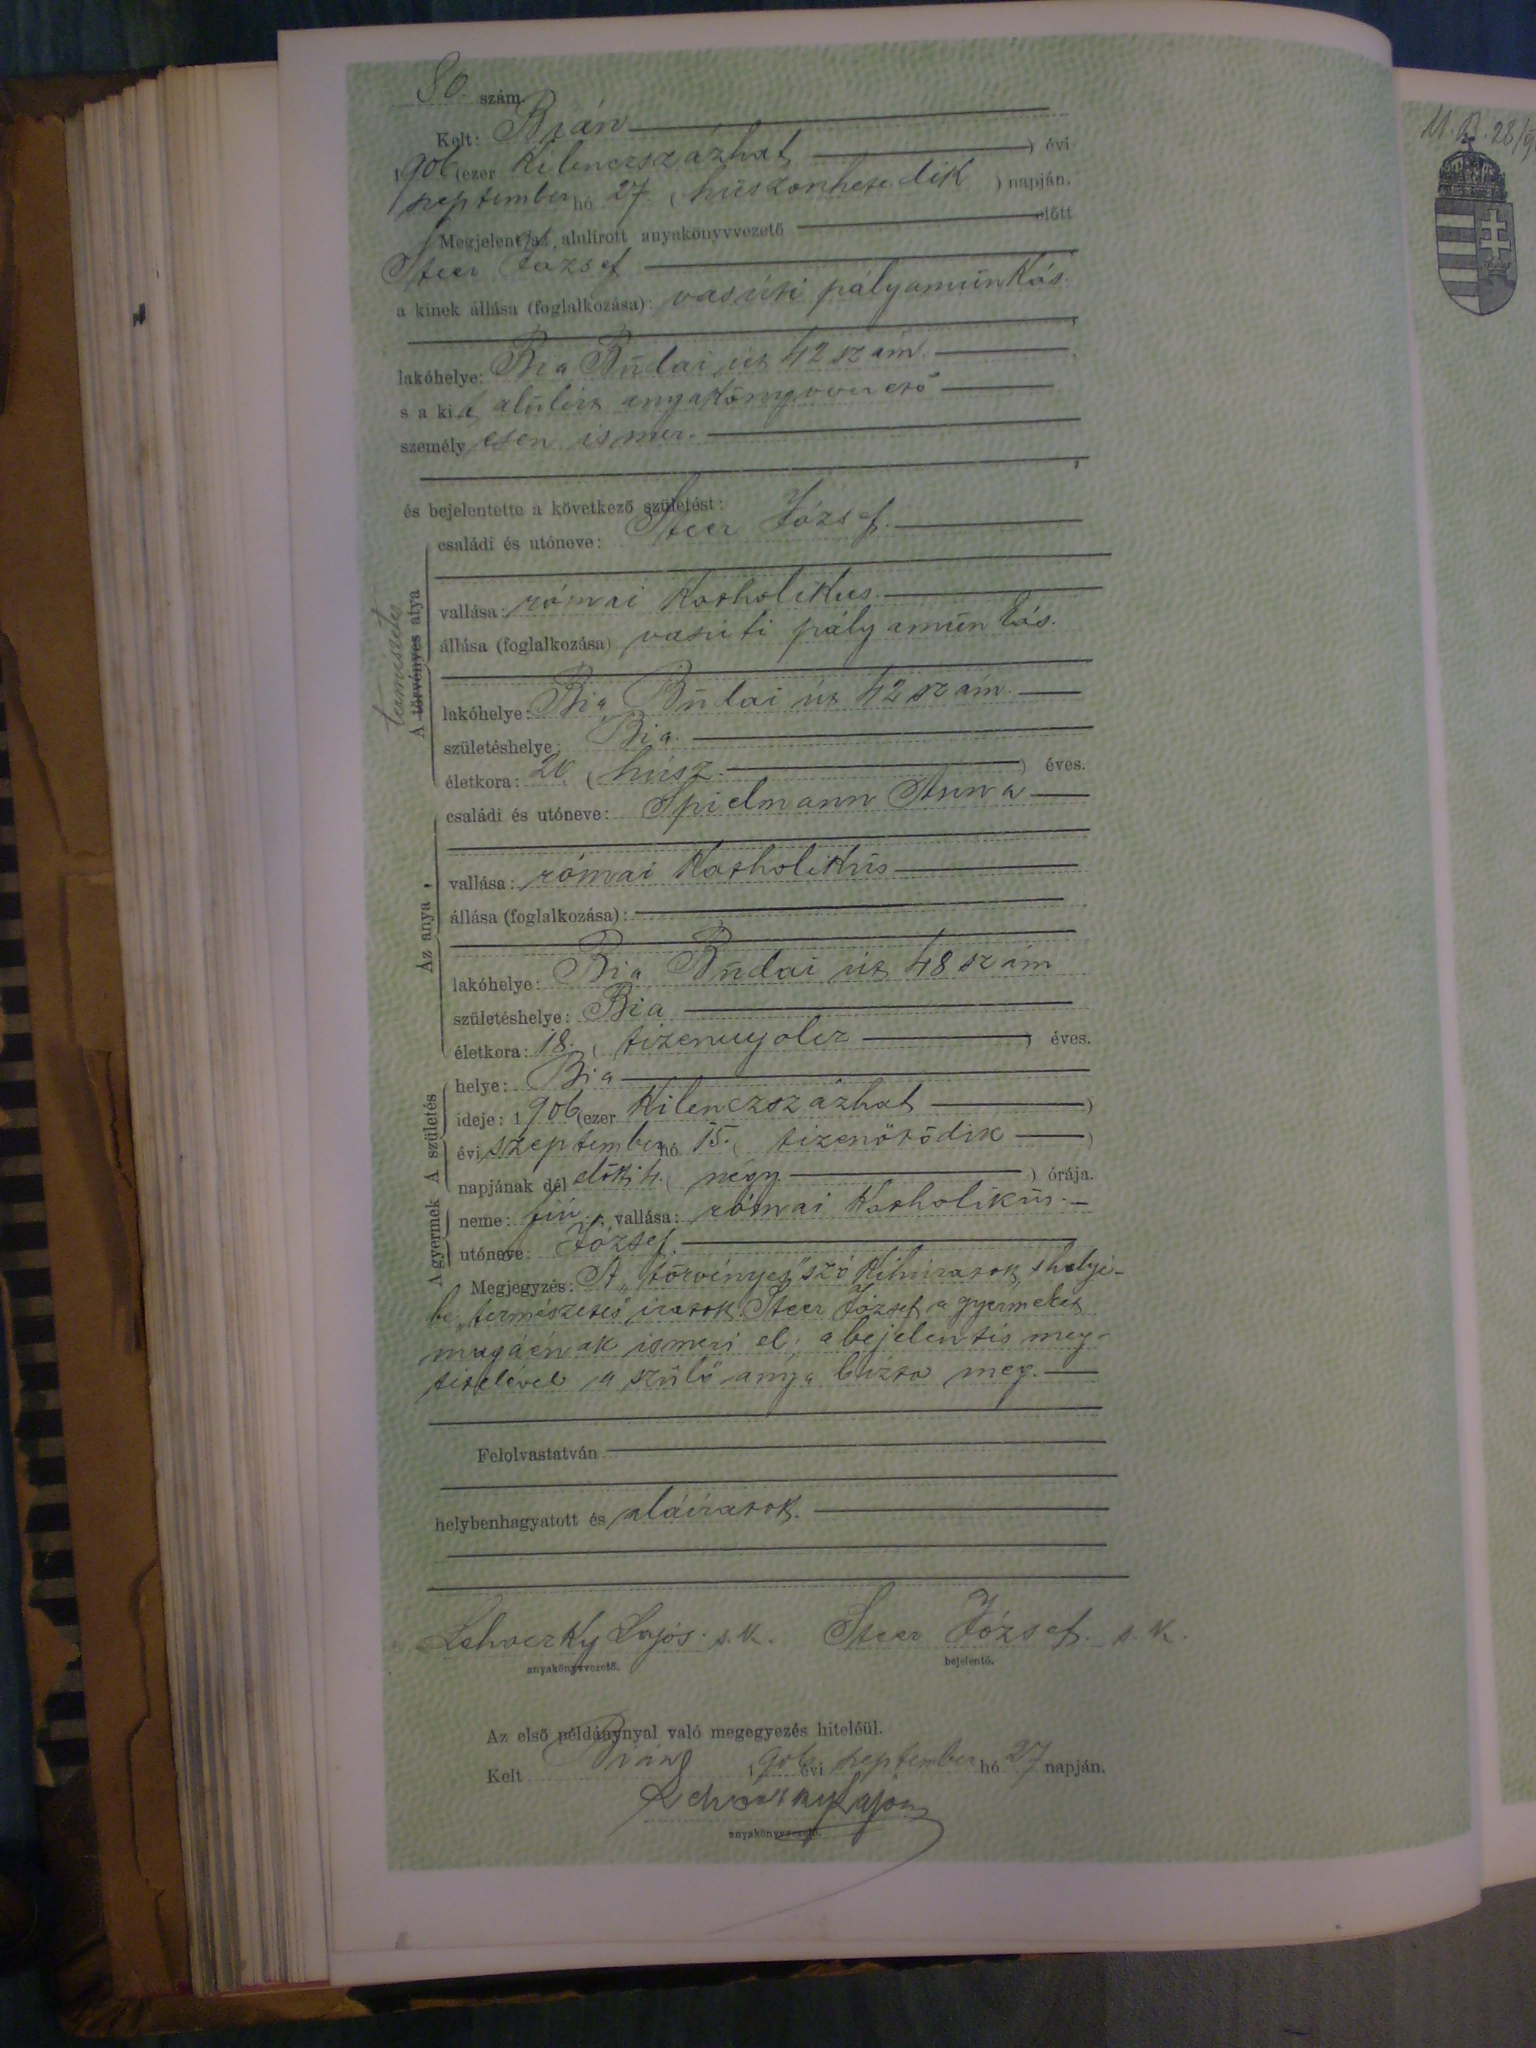 80. szám.
Kelt: Bián
1906 (ezer kilenczszázhat ) évi
szeptember hó 27. ( húszonhetedik ) napján.
Megjelent az alulirott anyakönyvvezető előtt
Steer József
a kinek állása (foglalkozása): vasúti pályamunkás.
lakóhelye: Bia Budai út 42 szám.
s a kit alulirt anyakönyvvezető
személyesen ismer.
és bejelentette a következő születést:
A törvényes atya
természetes
családi és utóneve: Steer József.
vallása: római katholikus.
állása (foglalkozása) vasúti pályamunkás.
lakóhelye: Bia, Budai út 42 szám.
születéshelye: Bia.
életkora: 20. ( húsz. ) éves.
Az anya
családi és utóneve: Spielmann Anna
vallása: római katholikus
állása (foglalkozása):
lakóhelye: Bia, Budai út 48 szám
születéshelye: Bia
életkora: 18. ( tizennyolcz ) éves.
A születés
helye: Bia
ideje: 1906 (ezer kilenczszázhat )
évi szeptember hó 15. ( tizenötödik )
napjának dél előtti 4. ( négy ) órája.
A gyermek
neme: fiú. vallása: római katholikus.
utóneve: József.
Megjegyzés: A „törvényes" szó kihúzatott, s helyé-
be „természetes" iratott. Steer József a gyermeket
magáénak ismeri el; a bejelentés meg-
tételével a szülő anya bízta meg.
Felolvastatván
helybenhagyatott és aláiratott.
Lehoczky Lajos. s. k. Steer József. s. k.
anyakönyvvezető. bejelentő.
Az első példánynyal való megegyezés hiteléül.
Kelt Bián, 1906. évi szeptember hó 27 napján.
Lehoczky Lajos
anyakönyvvezető.